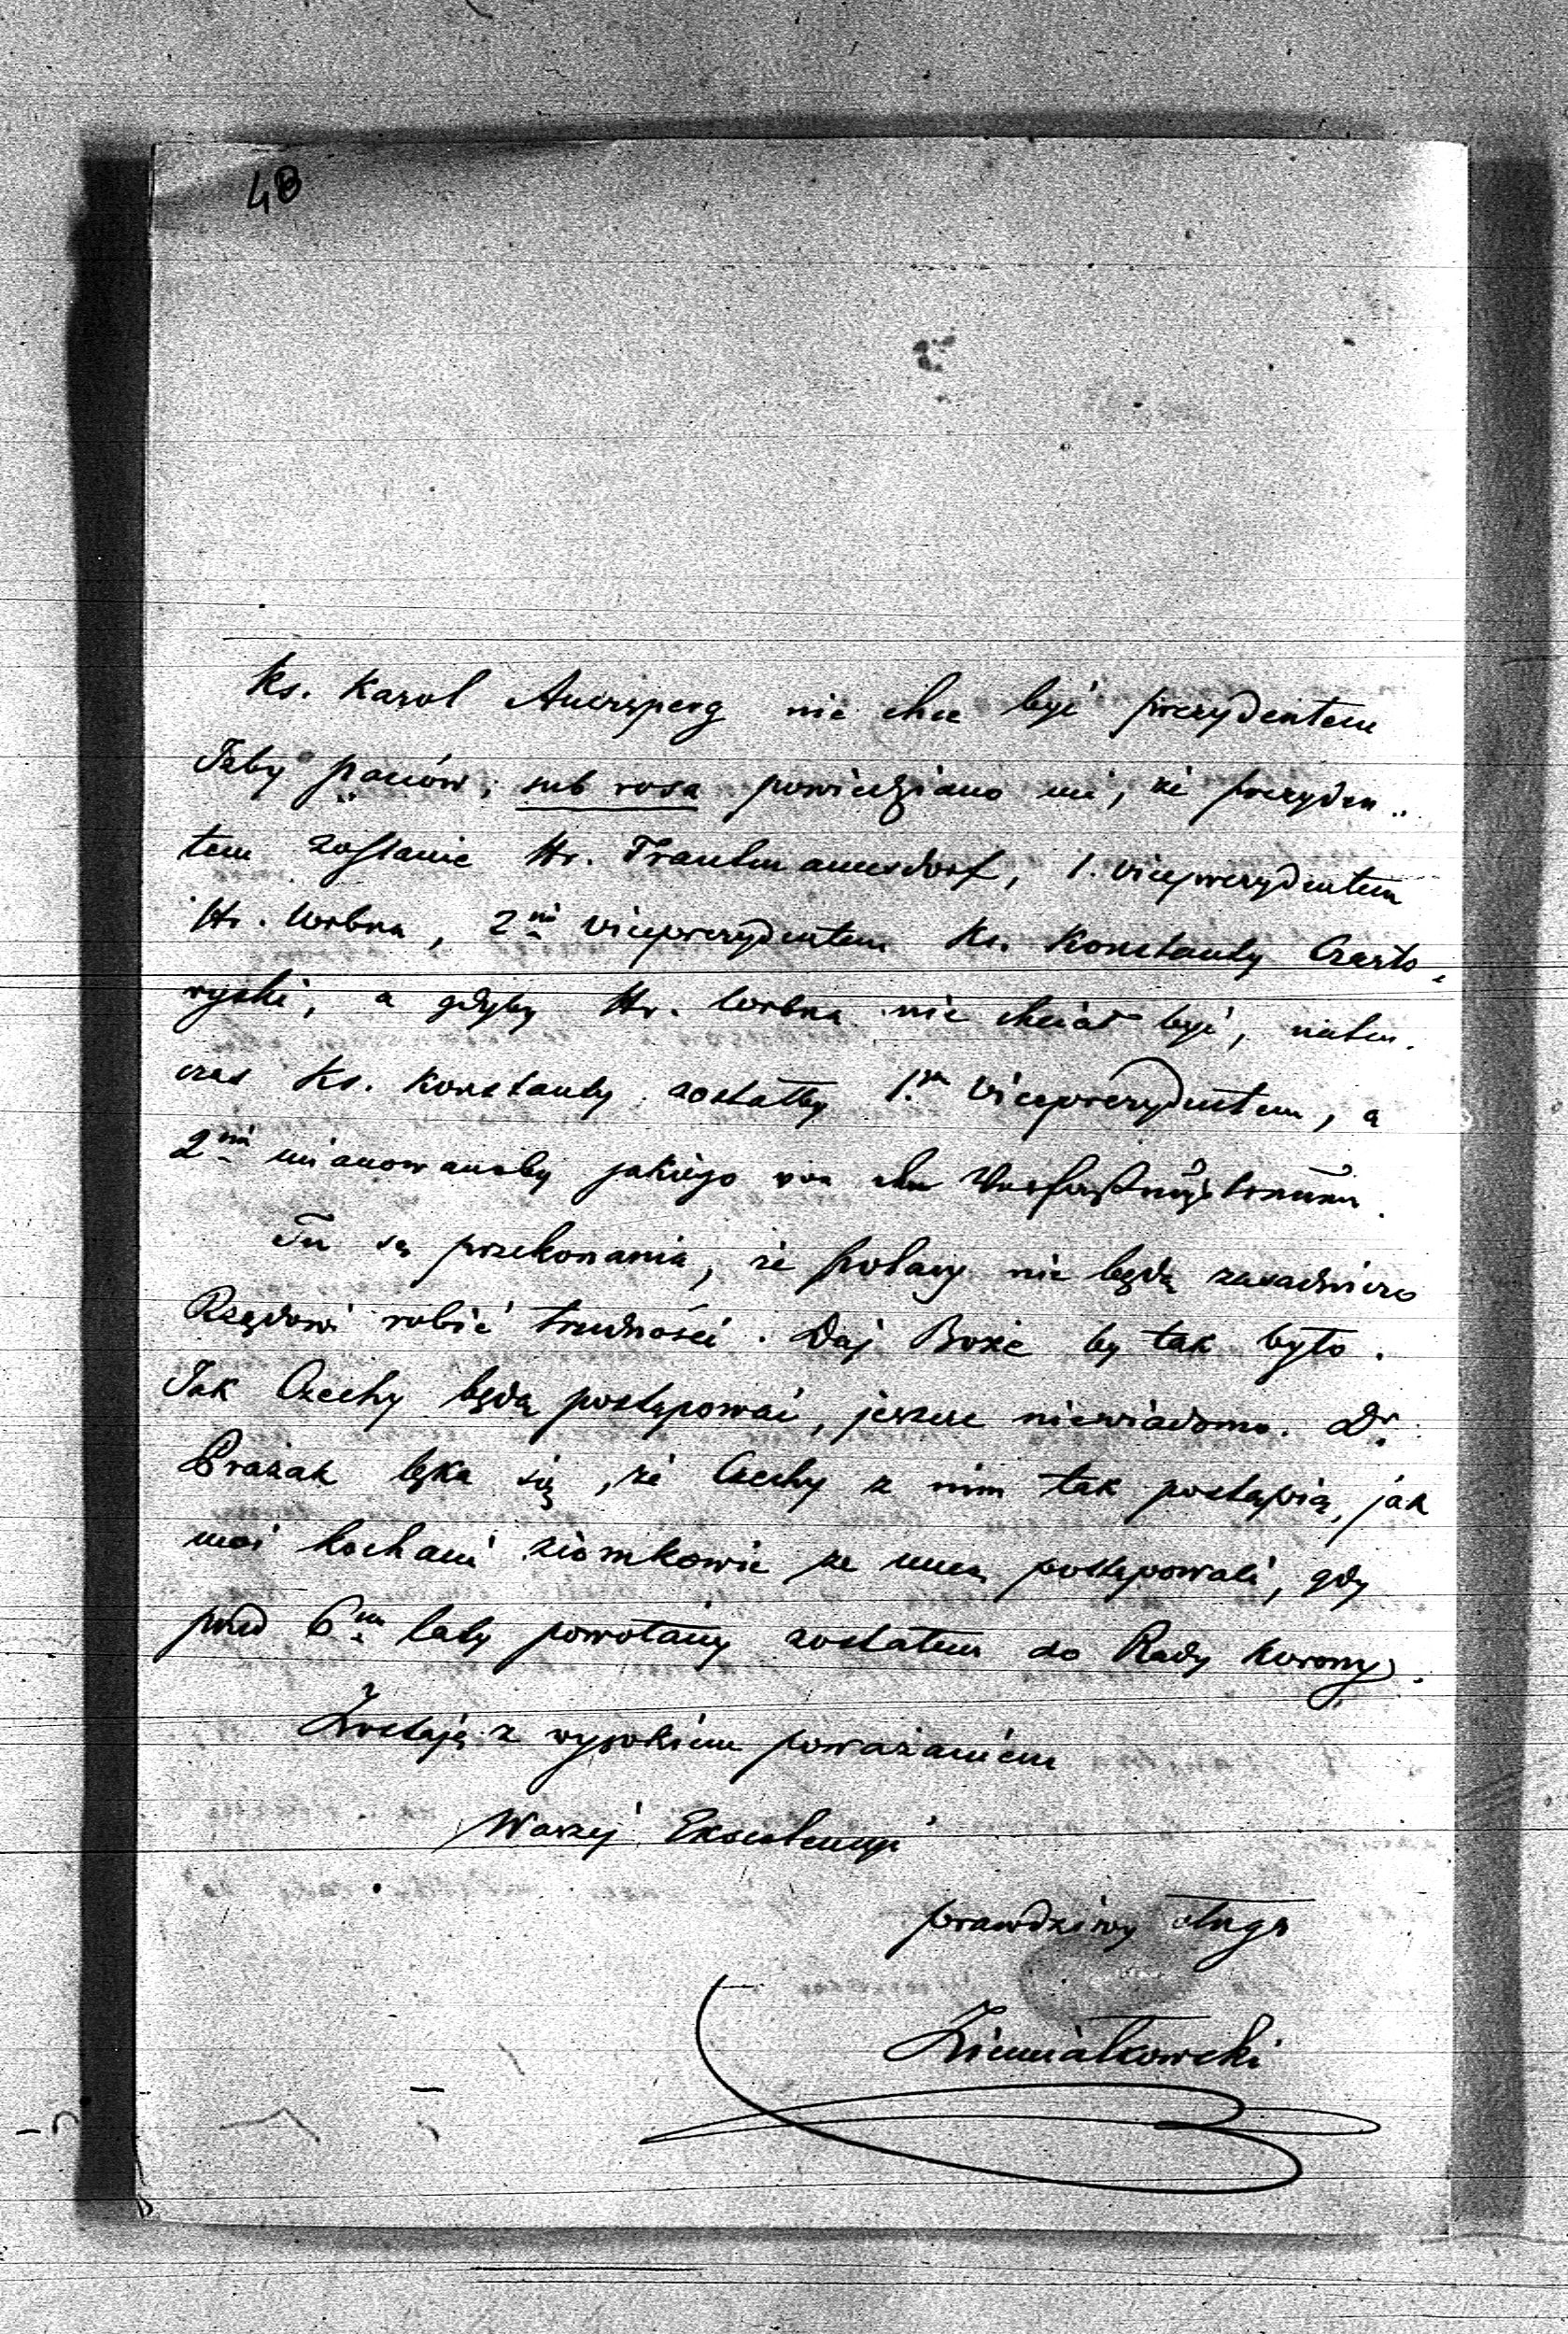 48
Ks. Karol Auersperg nie chce być prezydentem
Izby panów; sub rosa powiedziano mi, że prezyden„
tem zostanie Hr. Trautmannsdorf, 1. viceprezydentem
Hr. Wrbna, 2m viceprezydentem Ks. Konstanty Czarto„
ryski, a gdyby Hr. Wrbna nie chciał być, naten„
czas Ks. Konstanty zostałby 1.m viceprezydentem, a
2m mianowanoby jakiego von der
Tu są przekonania, że Polacy nie będą zasadniczo
Rządowi robić trudności. Daj Boże by tak było.
Jak Czechy będą postępować, jeszcze niewiadomo. Dr.
Prażak lęka się, że Czechy z nim tak postąpią, jak
moi kochani ziomkowie ze mną postępowali, gdy
przed 6m laty powołany zostałem do Rady Korony.
Zostaję z wysokiem poważaniem
Waszej Excelencyi
prawdziwy sługa
Ziemiałkowski